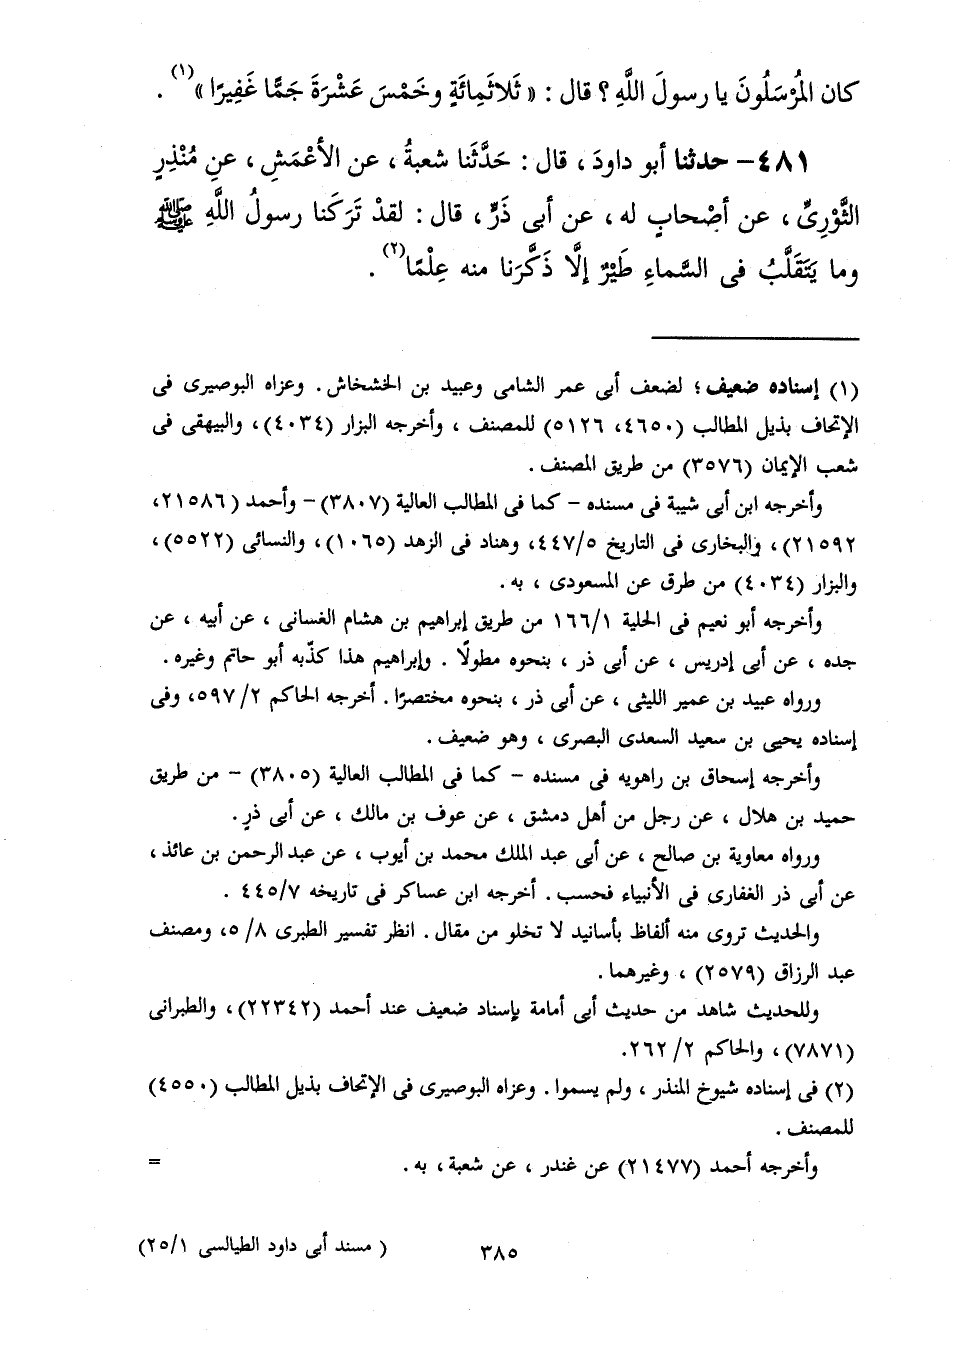 كان المُرْسَلُونَ يا رسولَ اللَّهِ ؟ قال : « ثَلاثَمِائَةٍ وخَمْسَ عَشْرَةَ جَمًّا غَفِيرًا »(١) .
٤٨١– حدثنا أبو داودَ ، قال : حَدَّثَنا شعبةُ ، عن الأعْمَشِ ، عنِ مُنْذِرٍ
الثَّوْرِىِّ ، عن أصْحابٍ له ، عن أبى ذَرٍّ ، قال : لقدْ تَرَكَنا رسولُ اللَّهِ ﷺ
وما يَتَقَلَّبُ فى السَّماءِ طَيْرٌ إلَّا ذَكَّرَنا منه عِلْمًا(٢) .
(١) إسناده ضعيف ؛ لضعف أبى عمر الشامى وعبيد بن الخشخاش . وعزاه البوصيرى فى
الإتحاف بذيل المطالب (٤٦٥٠، ٥١٢٦) للمصنف ، وأخرجه البزار (٤٠٣٤)، والبيهقى فى
شعب الإيمان (٣٥٧٦) من طريق المصنف .
وأخرجه ابن أبى شيبة فى مسنده – كما فى المطالب العالية (٣٨٠٧)– وأحمد (٢١٥٨٦،
٢١٥٩٢)، والبخارى فى التاريخ ٤٤٧/٥، وهناد فى الزهد (١٠٦٥)، والنسائى (٥٥٢٢)،
والبزار (٤٠٣٤) من طرق عن المسعودى ، به .
وأخرجه أبو نعيم فى الحلية ١٦٦/١ من طريق إبراهيم بن هشام الغسانى ، عن أبيه ، عن
جده ، عن أبى إدريس ، عن أبى ذر ، بنحوه مطولًا . وإبراهيم هذا كذّبه أبو حاتم وغيره .
ورواه عبيد بن عمير الليثى ، عن أبى ذر ، بنحوه مختصرًا . أخرجه الحاكم ٥٩٧/٢، وفى
إسناده يحيى بن سعيد السعدى البصرى ، وهو ضعيف .
وأخرجه إسحاق بن راهويه فى مسنده – كما فى المطالب العالية (٣٨٠٥) – من طريق
حميد بن هلال ، عن رجل من أهل دمشق ، عن عوف بن مالك ، عن أبى ذرٍ .
ورواه معاوية بن صالح ، عن أبى عبد الملك محمد بن أيوب ، عن عبد الرحمن بن عائذ ،
عن أبى ذر الغفارى فى الأنبياء فحسب . أخرجه ابن عساكر فى تاريخه ٤٤٥/٧ .
والحديث تروى منه ألفاظ بأسانيد لا تخلو من مقال . انظر تفسير الطبرى ٥/٨، ومصنف
عبد الرزاق (٢٥٧٩) ، وغيرهما .
وللحديث شاهد من حديث أبى أمامة بإسناد ضعيف عند أحمد (٢٢٣٤٢)، والطبرانى
(٧٨٧١)، والحاكم ٢٦٢/٢.
(٢) فى إسناده شيوخ المنذر ، ولم يسموا . وعزاه البوصيرى فى الإتحاف بذيل المطالب (٤٥٥٠)
للمصنف .
وأخرجه أحمد (٢١٤٧٧) عن غندر ، عن شعبة ، به . =
٣٨٥
( مسند أبى داود الطيالسى ٢٥/١)